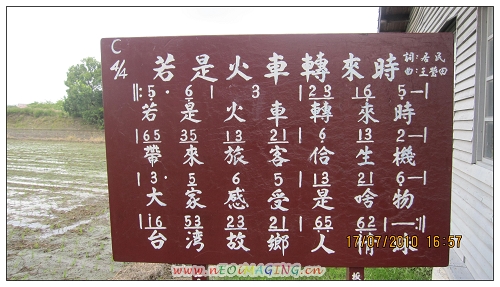 C 4/4
若是火車轉來時
詞:居民
曲:王登田
||: 5 · 6 | 3 | 2 3 1 6 5 — |
若是火車轉來時
| 6 5 3 5 1 3 2 1 | 6 1 3 2 — |
帶來旅客佮生機
| 3 · 5 6 5 | 1 3 2 1 6 — |
大家感受是啥物
| i 6 5 3 2 3 2 1 | 6 5 6 2 1 — :||
台湾故鄉人情味
17/07/2010 16:57
www.nEOiMAGING.cn